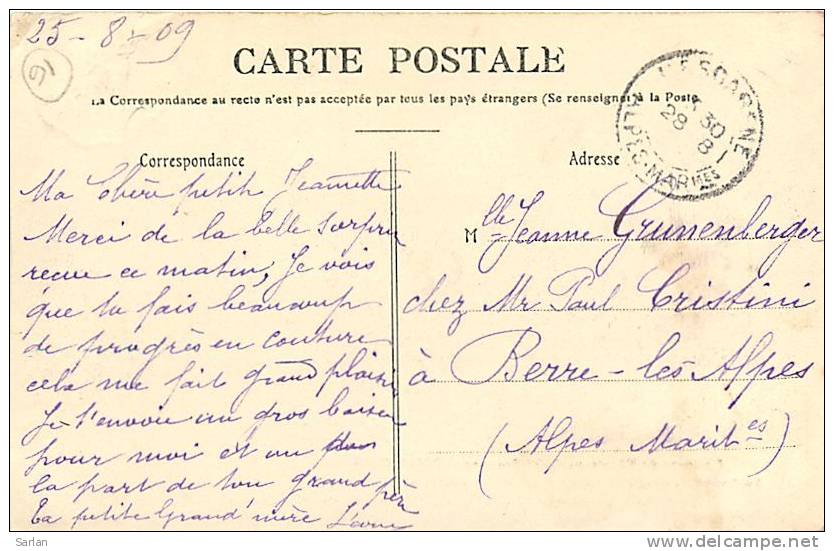 25-8-09
CARTE POSTALE
La Correspondance au recto n'est pas acceptée par tous les pays étrangers (Se renseigner à la Poste
Correspondance
Ma Chère petite Jeannette
Merci de la belle surprise
recue ce matin, Je vois
que tu fais beaucoup
de progrès en couture
cela me fait grand plaisir
Je t'envoie un gros baiser
pour moi et un
la part de ton grand père
Ta petite Grand'mère
Adresse
L'ESCARENE
30
28 8
ALPES-MARMES
Mlle Jeanne Grunenberger
chez Mr Paul Cristini
à Berre-les-Alpes
(Alpes Marit.es)
Sarlan
www.delcampe.net